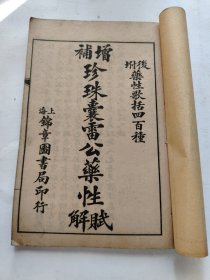 後附藥性歌括四百種
增補珍珠囊雷公藥性賦解
上海錦章圖書局印行